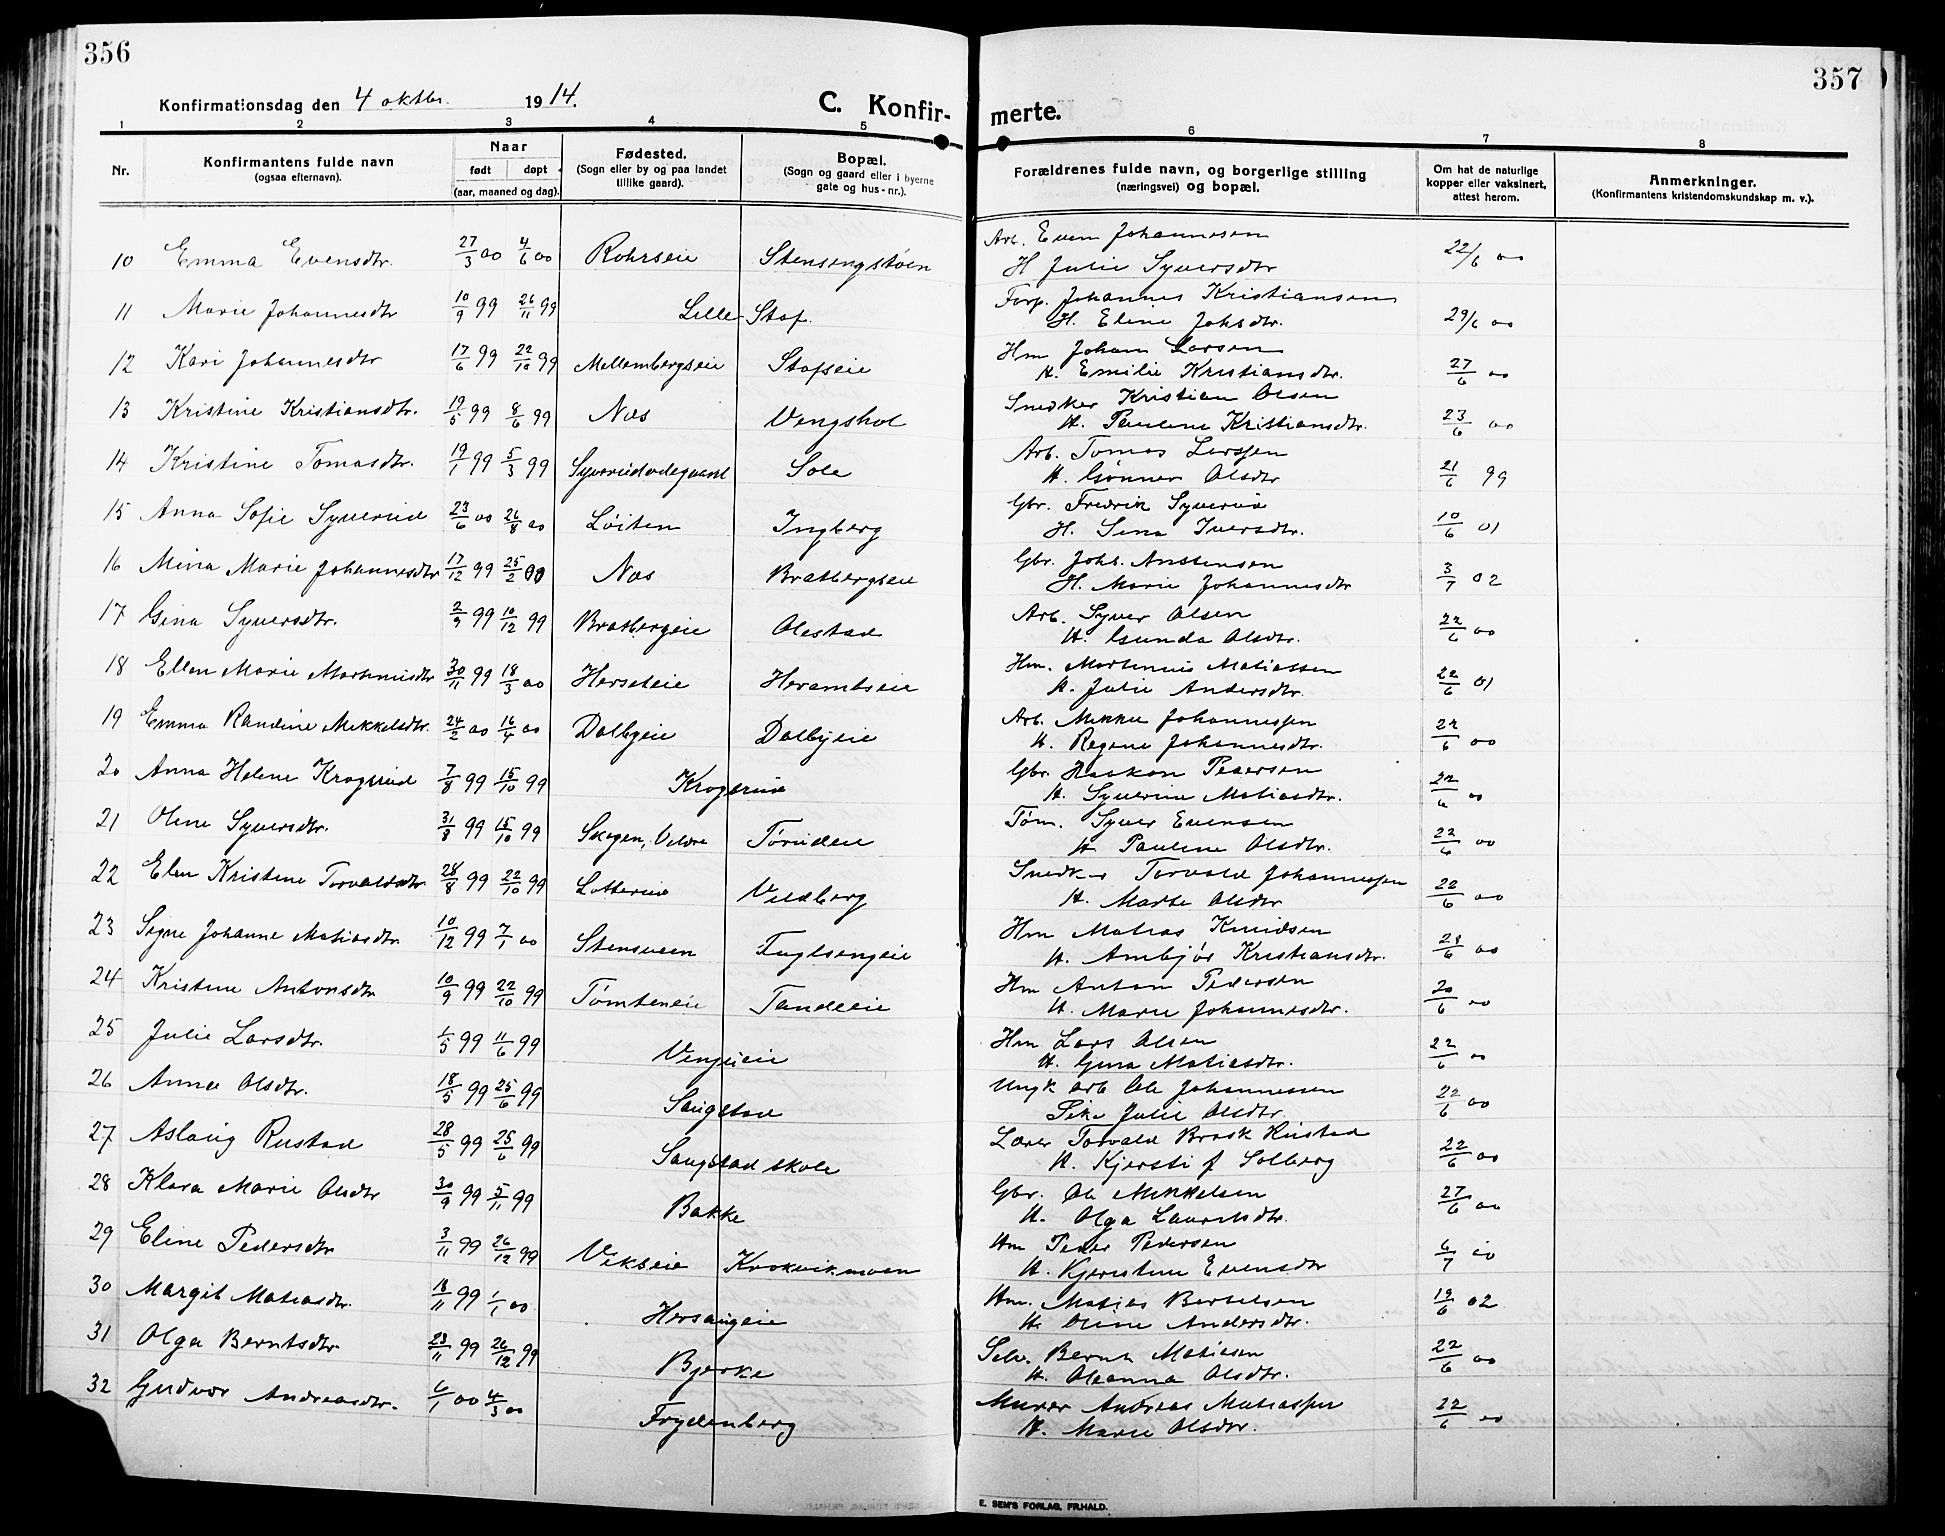 356
Konfirmationsdag den 4 oktbr. 1914.
C. Konfir-
1 2 3 4 5
Nr.
Konfirmantens fulde navn
(ogsaa efternavn).
Naar
født døpt
(aar, maaned og dag).
Fødested.
(Sogn eller by og paa landet
tillike gaard).
Bopæl.
(Sogn og gaard eller i byerne
gate og hus-nr.).
10 Emma Evensdtr. 27/3 00 4/6 00 Rohrseie Stensengstøen
11 Marie Johannesdtr 10/9 99 26/11 99 Lille Staf.
12 Kari Johannesdtr 17/6 99 22/10 99 Mellembergseie Stafseie
13 Kristine Kristiansdtr. 19/5 99 8/6 99 Næs Vengshol
14 Kristine Tomasdtr. 19/1 99 5/3 99 Syverudødegaard Sole
15 Anna Sofie Syverud 23/6 00 26/8 00 Løiten Ingberg
16 Mina Marie Johannesdtr 17/12 99 25/2 00 Næs Bratbergseie
17 Gina Syversdtr. 2/9 99 10/12 99 Bratbergeie Olestad
18 Ellen Marie Martinusdtr 30/11 99 18/3 00 Herseteie
19 Emma Randine Mikkelsdtr. 24/2 00 16/4 00 Dalbyeie Dalbyeie
20 Anna Helene Krogsrud 7/8 99 15/10 99 Krogsrud
21 Oline Syversdtr. 31/8 99 15/10 99 Skogen, Veldre Tørudeie
22 Elen Kristine Torvaldsdtr 28/8 99 22/10 99 Lotterud Vedberg
23 Signe Johanne Matiasdtr. 10/12 99 7/1 00 Stensveen Fuglsengeie
24 Kristine Antonsdtr 10/9 99 22/10 99 Tømteneie Tandeeie
25 Julie Larsdtr. 1/5 99 11/6 99
26 Anna Olsdtr. 18/5 99 25/6 99 Saugstad
27 Aslaug Rustad 28/5 99 25/6 99 Saugstad skole
28 Klara Marie Olsdtr 30/9 99 5/11 99 Bakke
29 Eline Pedersdtr 3/11 99 26/12 99 Vekseie Krokvikmoen
30 Margit Matiasdtr. 18/11 99 1/1 00 Hersaugeie
31 Olga Berntsdtr 23/11 99 26/12 99 Bjerke
32 Gudvor Andreasdtr. 6/1 00 4/3 00 Frydenberg
357
merte.
6 7 8
Forældrenes fulde navn, og borgerlige stilling
(næringsvei) og bopæl.
Om hat de naturlige
kopper eller vaksinert,
attest herom.
Anmerkninger.
(Konfirmantens kristendomskundskap m. v.).
Arb. Even Johannesen
H Julie Syversdtr 22/6 00
Forp. Johannes Kristiansen
H. Eline Johsdtr. 29/6 00
Hm Johan Larsen
H. Emilie Kristiansdtr. 27/6 00
Snedker Kristian Olsen
H. Pauline Kristiansdtr. 23/6 00
Arb. Tomas Larssen
H. Gunner Olsdtr 21/6 99
Gbr. Fredrik Syverud
H. Sina Iversdtr. 10/6 01
Gbr. Johs. Anstensen
H. Marie Johannesdtr 3/7 02
Arb. Syver Olsen
H. Gunda Olsdtr. 22/6 00
Hm. Martinus Matiassen
H. Julie Andersdtr. 22/6 01
Arb. Mikkel Johannessen
H. Regine Johannesdtr. 22/6 00
Gbr. Haakon Pedersen
H. Syverine Matiasdtr. 22/6 00
Tøm. Syver Evensen
H Pauline Olsdtr. 22/6 00
Snedker Torvald Johannessen
H. Marte Olsdtr 22/6 00
Hm Matias Knudsen
H. Ambjør Kristiansdtr. 28/6 00
Hm Anton Pedersen
H. Marie Johannesdtr. 20/6 00
Hm Lars Olsen
H. Gina Matiasdtr. 22/6 00
Ungk arb Ole Johannessen
Pike Julie Olsdtr. 22/6 00
Lærer Torvald Brask Rustad
H. Kjersti f Solberg 22/6 00
Gbr. Ole Mikkelsen
H. Olga Lauritsdtr. 27/6 00
Hm Peder Pedersen
H. Kjerstine Evensdtr 6/7 00
Hm. Matias Bertelsen
H. Oline Andersdtr. 19/6 02
Selv. Bernt Matiasen
H. Oleanna Olsdtr. 22/6 00
Murer Andreas Matiassen
H. Marie Olsdtr. 22/6 00
E. SEM'S FORLAG, FR.HALD.